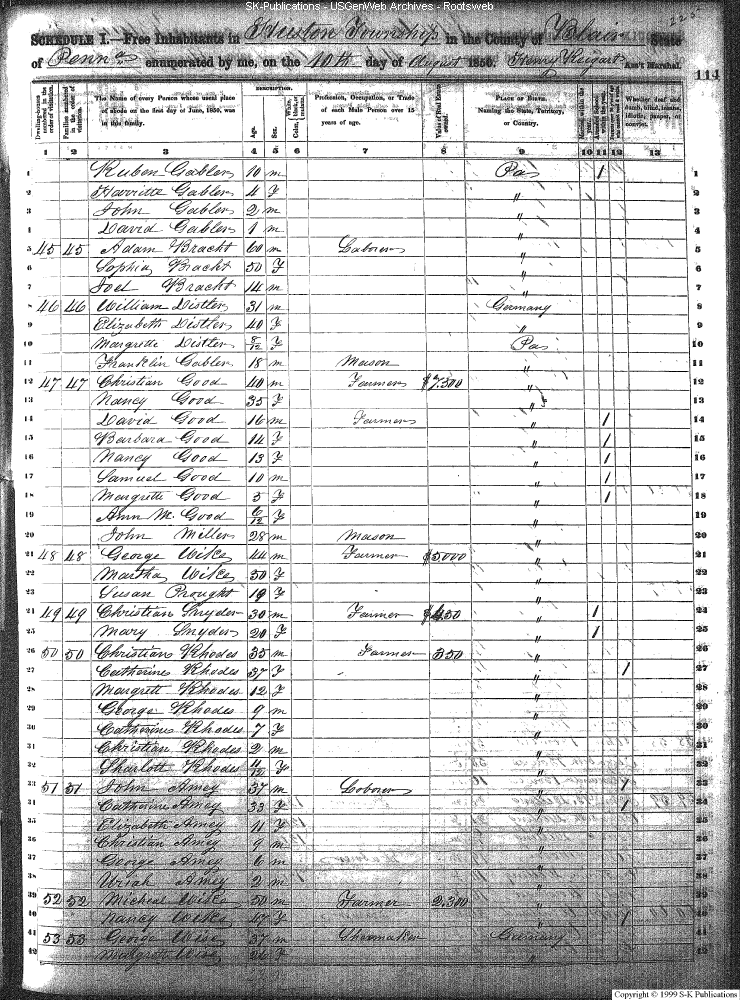 SK-Publications - USGenWeb Archives - Rootsweb
225
SCHEDULE I.—Free Inhabitants in Huston Township in the County of Blair State
of Penna enumerated by me, on the 10th day of August 1850. Henry Reigart Ass't Marshal.
114
Dwelling-houses numbered in the order of visitation.
Families numbered in the order of visitation.
The Name of every Person whose usual place of abode on the first day of June, 1850, was in this family.
DESCRIPTION.
Age. Sex. White, black, or mulatto. Color,
Profession, Occupation, or Trade of each Male Person over 15 years of age.
Value of Real Estate owned.
PLACE OF BIRTH. Naming the State, Territory, or Country.
Whether deaf and dumb, blind, insane, idiotic, pauper, or convict.
1 2 3 4 5 6 7 8 9 10 11 12 13
1 Ruben Gabler 10 m Pa 1 1
2 Harritte Gabler 4 F " 2
3 John Gabler 2 m " 3
4 David Gabler 1 m " 4
5 45 45 Adam Bracht 60 m Laborer " 5
6 Sophia Bracht 50 F " 6
7 Joel Bracht 14 m " 7
8 46 46 William Distler 31 m Germany 8
9 Elizabeth Distler 40 F " 9
10 Margrette Distler 8/12 F Pa 10
11 Franklin Gabler 18 m Mason " 11
12 47 47 Christian Good 40 m Farmer $7.500 " 12
13 Nancy Good 35 F " 13
14 David Good 16 m Farmer " 1 14
15 Barbara Good 14 F " 1 15
16 Nancy Good 13 F " 1 16
17 Samuel Good 10 m " 1 17
18 Margrette Good 5 F " 1 18
19 Ann M. Good 6/12 F " 19
20 John Miller 28 m Mason " 20
21 48 48 George Wike 44 m Farmer $5000 " 21
22 Martha Wike 50 F " 22
23 Susan Prought 19 F " 23
24 49 49 Christian Snyder 30 m Farmer $450 " 1 24
25 Mary Snyder 20 F " 1 25
26 50 50 Christian Rhodes 35 m Farmer 350 " 26
27 Catharine Rhodes 37 F " 1 27
28 Margrett Rhodes 12 F " 28
29 George Rhodes 9 m " 29
30 Catharine Rhodes 7 F " 30
31 Christian Rhodes 2 m " 31
32 Sharlott Rhodes 11/12 F " 32
33 51 51 John Amey 37 m Laborer " 1 33
34 Catharine Amey 33 F " 1 34
35 Elizabeth Amey 11 F " 35
36 Christian Amey 9 m " 36
37 George Amey 6 m " 37
38 Uriah Amey 2 m " 38
39 52 52 Micheal Wike 50 m Farmer 2.300 " 39
40 Nancy Wike F " 1 40
41 53 53 George Wise 37 m Shoemaker Germany 41
42 Wise F " 42
Copyright © 1999 S-K Publications